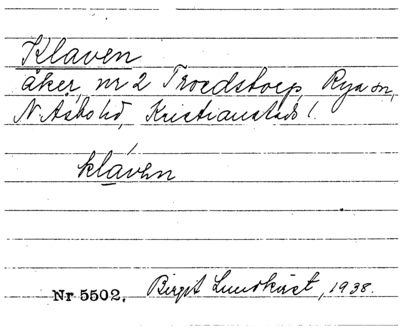 Klaven
åker, nr 2 Troedstorp, Rya sn,
N. Åsbo hd, Kristianstads l.
klavən
Nr 5502. Birgit Lundkvist, 1938.